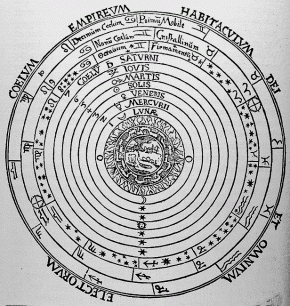 COELVM EMPIREVM HABITACVLVM DEI
ET OMNIVM ELECTORVM
Decimum Coelum Primū Mobile
Nonū Coelum Cristallinum
COELV
SATVRNI
IOVIS
MARTIS
SOLIS
VENERIS
MERCVRII
LVNAE